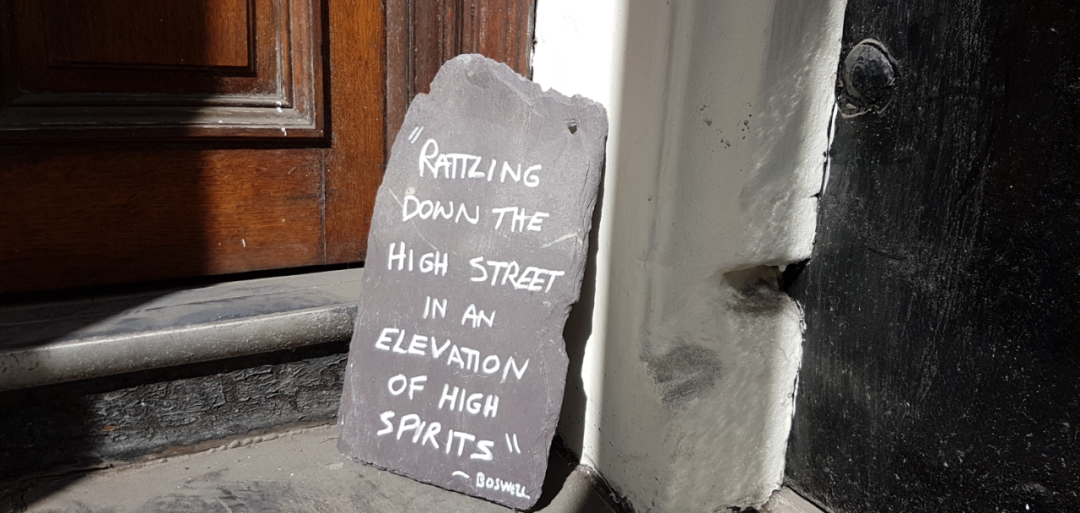 "RATTLING
DOWN THE
HIGH STREET
IN AN
ELEVATION
OF HIGH
SPIRITS"
~ BOSWELL